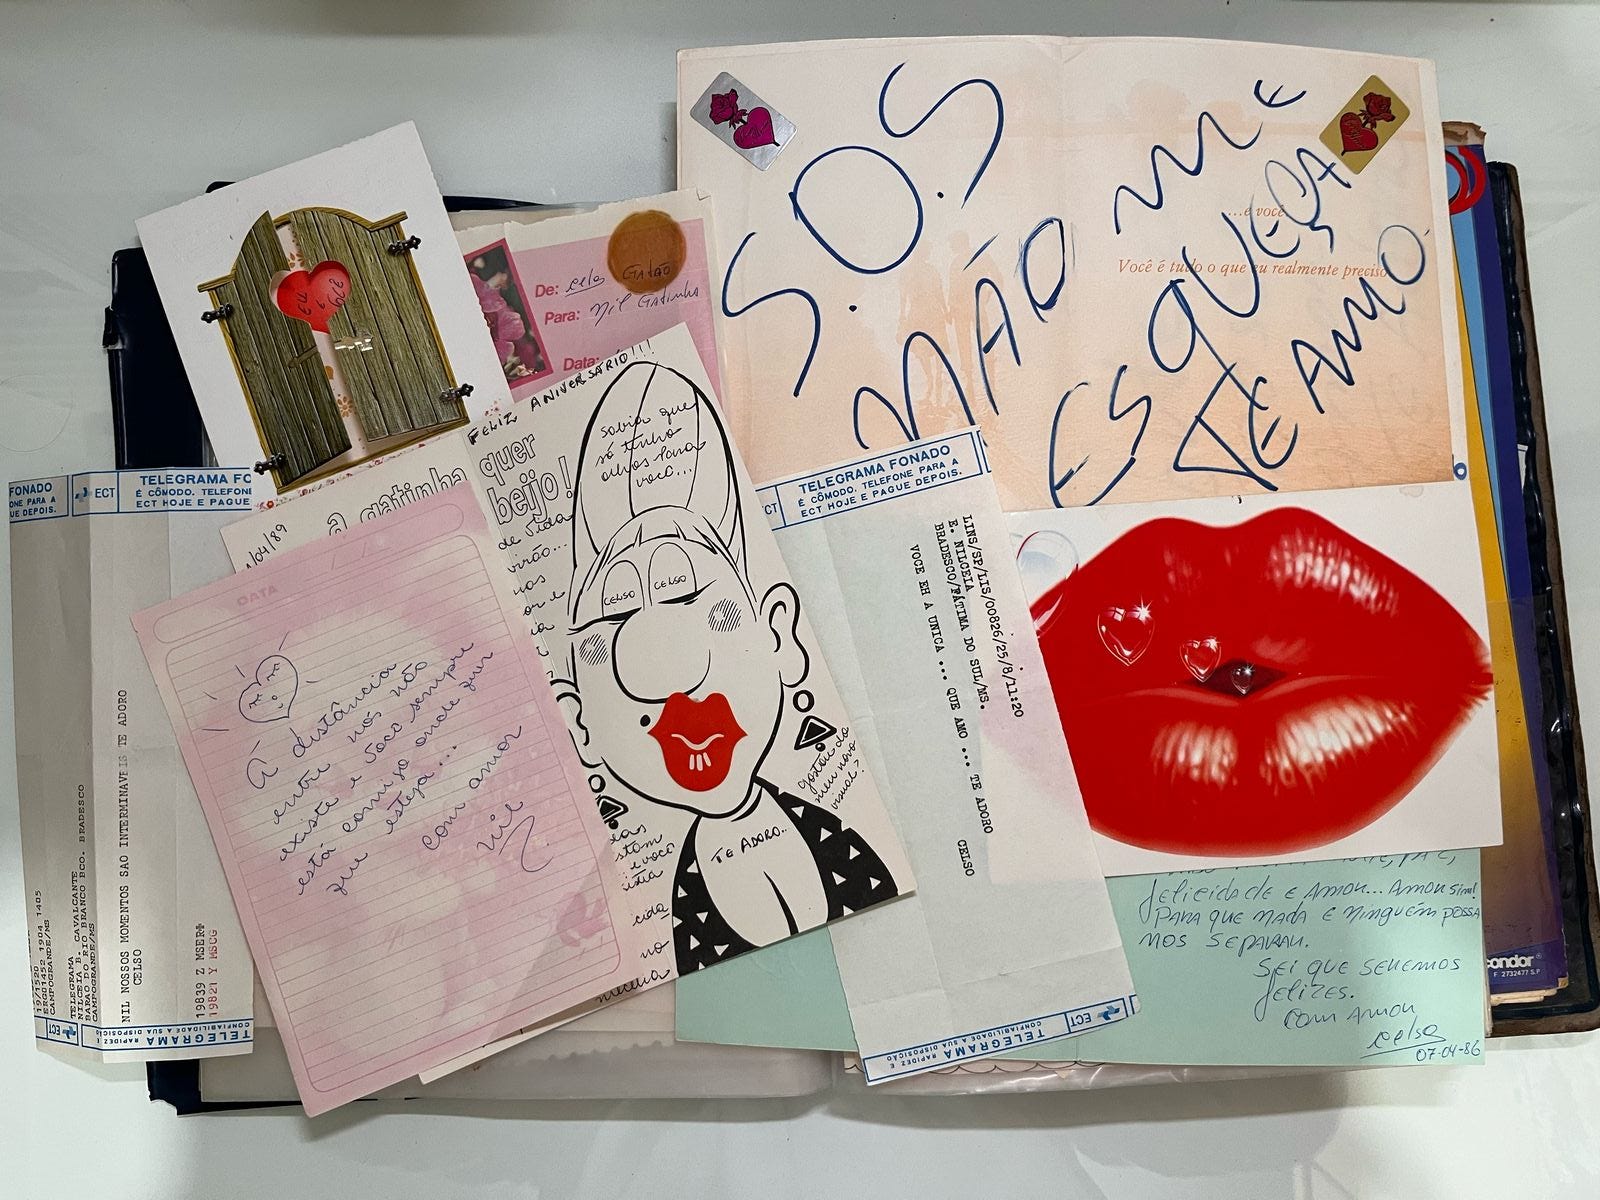 S.O.S
NÃO ME
ESQUEÇA
TE AMO.
...e você
Você é tudo o que eu realmente preciso
De: Celso GATÃO
Para: Nil Gatinha
Data:
FELIZ ANIVERSÁRIO!!!
quer
beijo!
a gatinha
sabia que
só tinha
olhos para
você...
CELSO
CELSO
gostou do
meu novo
visual?
TE ADORO...
/04/89
de vida
DATA
A distância
entre nós não
existe e você sempre
está comigo onde quer
que esteja...
com amor
Nil
FONADO
FONE PARA A
UE DEPOIS.
ECT
TELEGRAMA FO
É CÔMODO. TELEFONE
ECT HOJE E PAGUE
19/1520 1904 1405
CAMPOGRANDE/MS
TELEGRAMA
NILCEIA B. CAVALCANTE
BARAO DO RIO BRANCO BCO. BRADESCO
CAMPOGRANDE/MS
NIL NOSSOS MOMENTOS SAO INTERMINAVEIS TE ADORO
CELSO
19821 Y MSCG
ECT
TELEGRAMA
RAPIDEZ E
CONFIABILIDADE A SUA DISPOSIÇÃO
CT
TELEGRAMA FONADO
É CÔMODO. TELEFONE PARA A
ECT HOJE E PAGUE DEPOIS.
LINS/SP/LIS/00826/25/8/11:20
E. NILCEIA
BRADESCO/FÁTIMA DO SUL/MS.
VOCE EH A UNICA ... QUE AMO ... TE ADORO CELSO
TELEGRAMA
RAPIDEZ E
CONFIABILIDADE A SUA DISPOSIÇÃO
ECT
felicidade e Amor... Amor sim!
Para que nada e ninguém possa
nos separar.
Sei que seremos
felizes.
Com Amor
Celso
07-04-86
condor
F 2732477 S.P